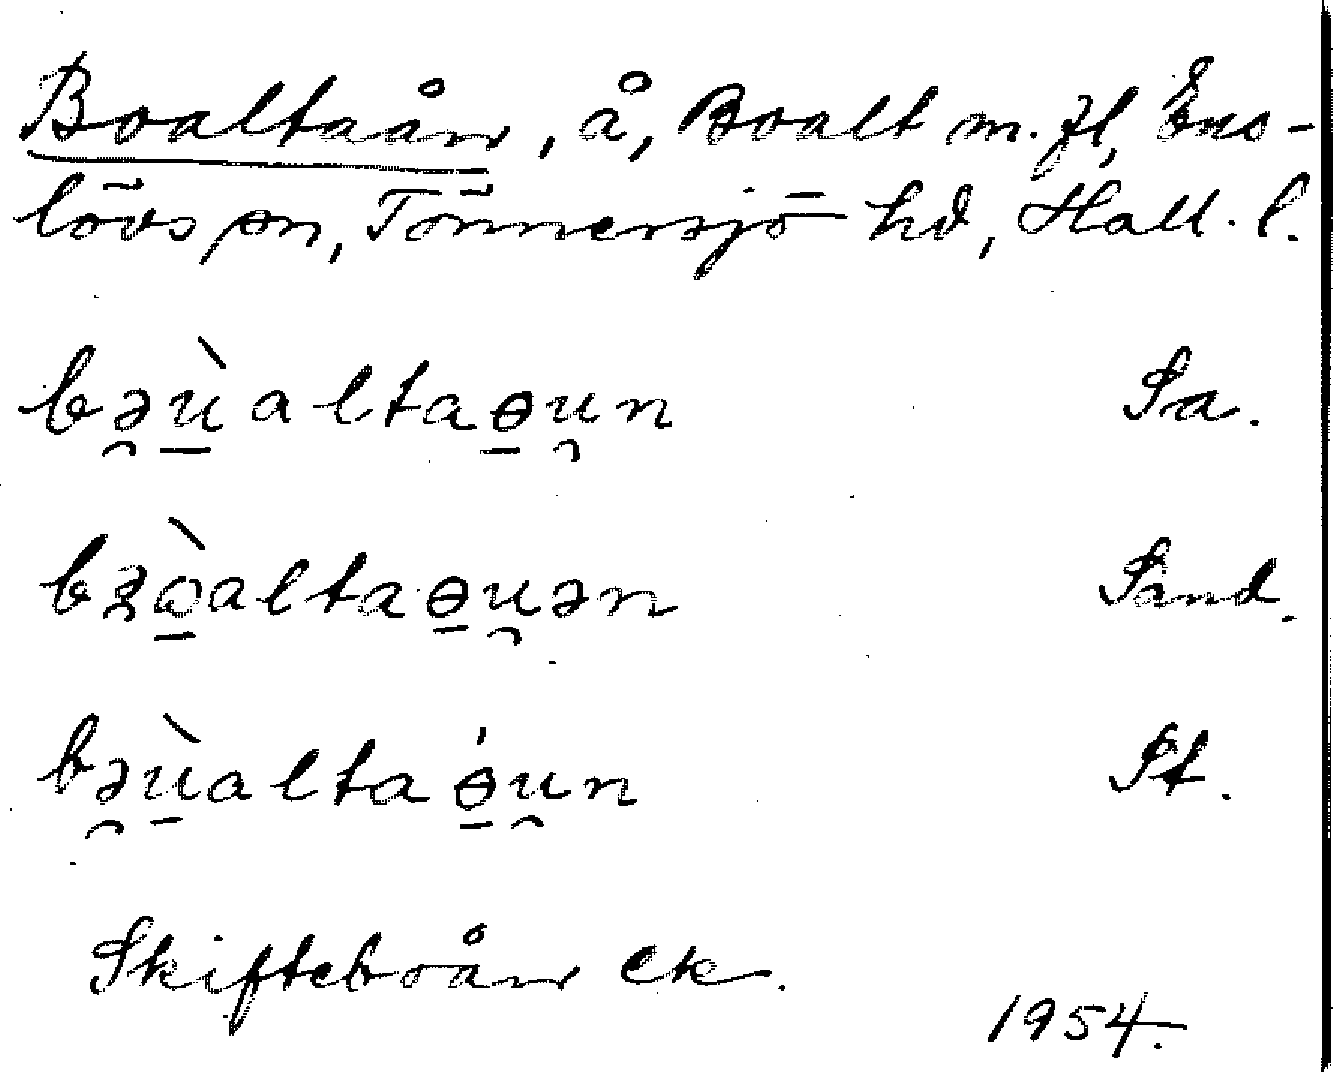 Boaltaån, å, Boalt m.fl, Ens-
lövs sn, Tönnersjö hd, Hall. l.
bə̯ù̱altaɵ̱u̯n Sa.
altaɵ̱u̯ən Sand.
bə̯ù̱altaɵ̱́u̯n St.
Skifteboån ek.
1954.